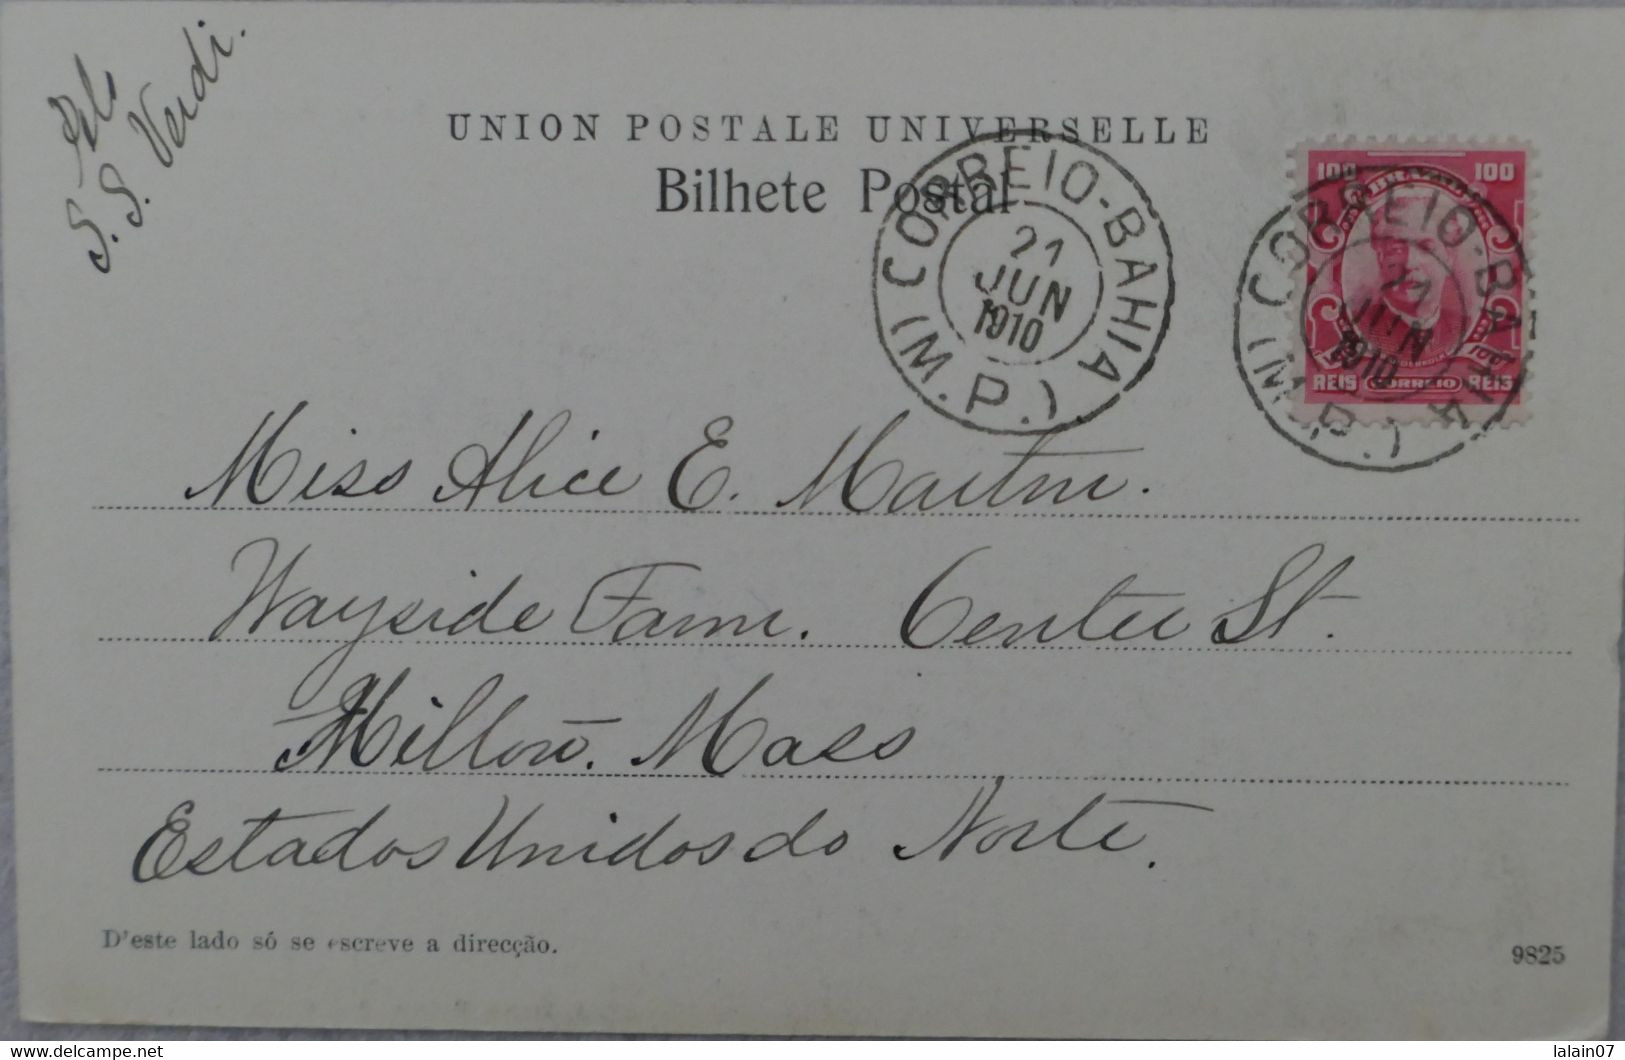 Pelo
S. S. Verdi.
UNION POSTALE UNIVERSELLE
Bilhete Postal
CORREIO-BAHIA
21
JUN
1910
(M.P.)
100 BRAZIL 100
REIS CORREIO REIS
CORREIO-BAHIA
21
JUN
1910
(M.P.)
Miss Alice E. Martin.
Wayside Farm. Center St.
Milton. Mass
Estados Unidos do Norte.
D'este lado só se escreve a direcção.
9825
www.delcampe.net
lalain07